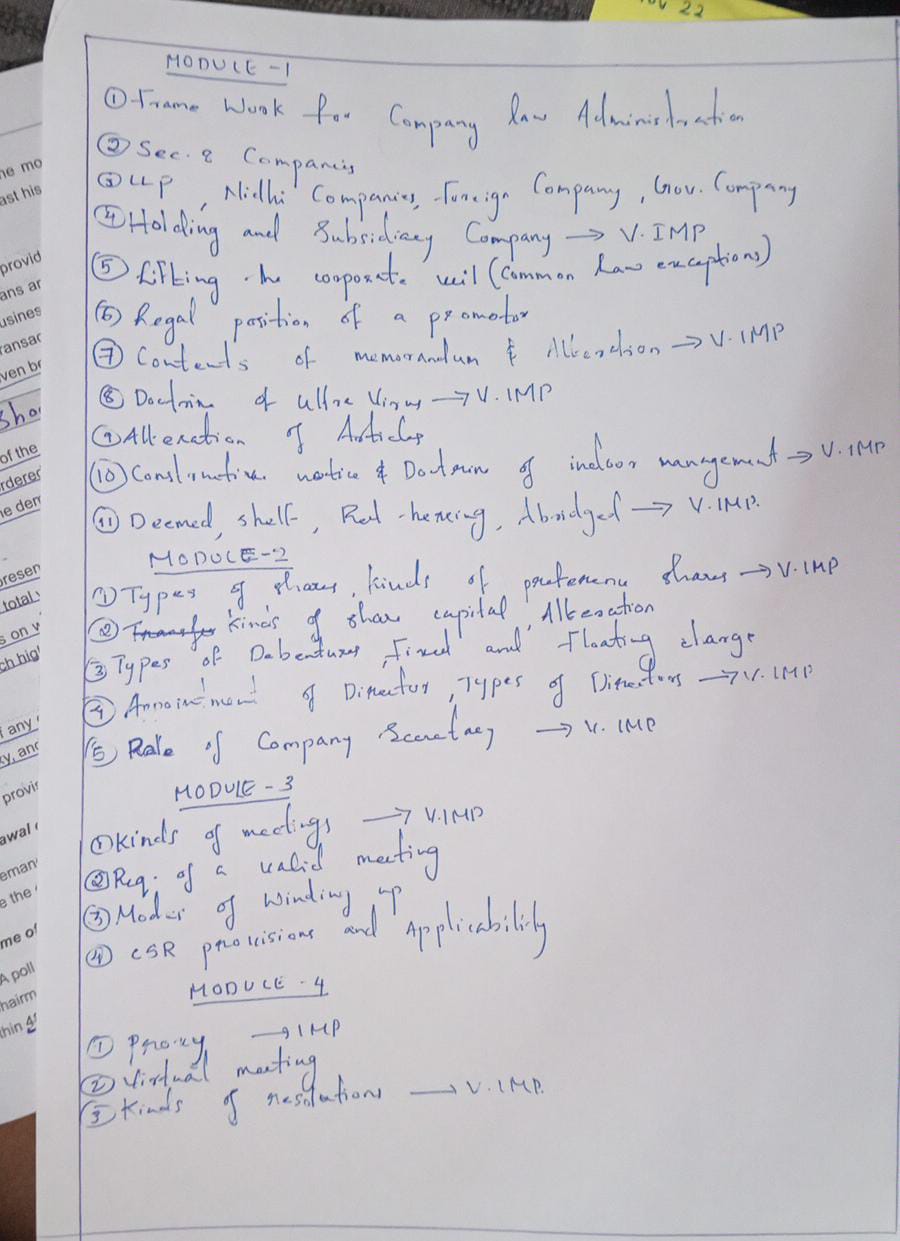 ov 22
MODULE - 1
① Frame Work for Company law Administration
② Sec. 8 Companies
③ LLP, Nidhi Companies, Foreign Company, Gov. Company
④ Holding and Subsidiary Company → V. IMP
⑤ Lifting the corporate veil (Common Law exceptions)
⑥ Legal position of a promotor
⑦ Contents of memorandum & Alteration → V. IMP
⑧ Doctrine of Ultra Virus → V. IMP
⑨ Alteration of Articles
⑩ Constructive notice & Doctrin of indoor management → V. IMP
⑪ Deemed, shelf, Red-herring, Abridged → V. IMP.
MODULE - 2
① Types of shares, kinds of preference shares → V. IMP
② Transfer kinds of share capital, Alteration
③ Types of Debentures, Fixed and Floating charge
④ Appointment of Director, Types of Directors → V. IMP
⑤ Role of Company Secretary → V. IMP
MODULE - 3
① Kinds of meetings → V.IMP
② Req. of a valid meeting
③ Modes of Winding up
④ CSR provisions and Applicability
MODULE - 4
① Proxy → IMP
② Virtual meeting
③ Kinds of resolutions → V. IMP.
he mo
ast his
provid
ans ar
usines
ransac
ven be
Sho
of the
rdered
he den
presen
total
s on w
ch hig
any
y, and
provis
awal
eman
e the
me of
A poll
hairm
thin 4